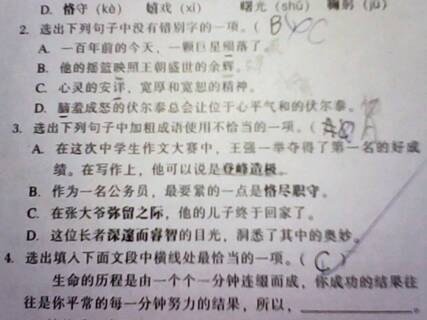 D. 恪守(kè) 嬉戏(xī) 曙光(shǔ) 鞠躬(jū)
2. 选出下列句子中没有错别字的一项。( B C
A. 一百年前的今天，一颗巨星殒落了。
B. 他的摇篮映照王朝盛世的余辉。
C. 心灵的安详，宽厚和宽恕的精神。
D. 脑羞成怒的伏尔泰总会让位于心平气和的伏尔泰。
3. 选出下列句子中加粗成语使用不恰当的一项。( A
A. 在这次中学生作文大赛中，王强一举夺得了第一名的好成
绩。在写作上，他可以说是登峰造极。
B. 作为一名公务员，最要紧的一点是恪尽职守。
C. 在张大爷弥留之际，他的儿子终于回家了。
D. 这位长者深邃而睿智的目光，洞悉了其中的奥妙。
4. 选出填入下面文段中横线处最恰当的一项。( C )
生命的历程是由一个个一分钟连缀而成，你成功的结果往
往是你平常的每一分钟努力的结果，所以，